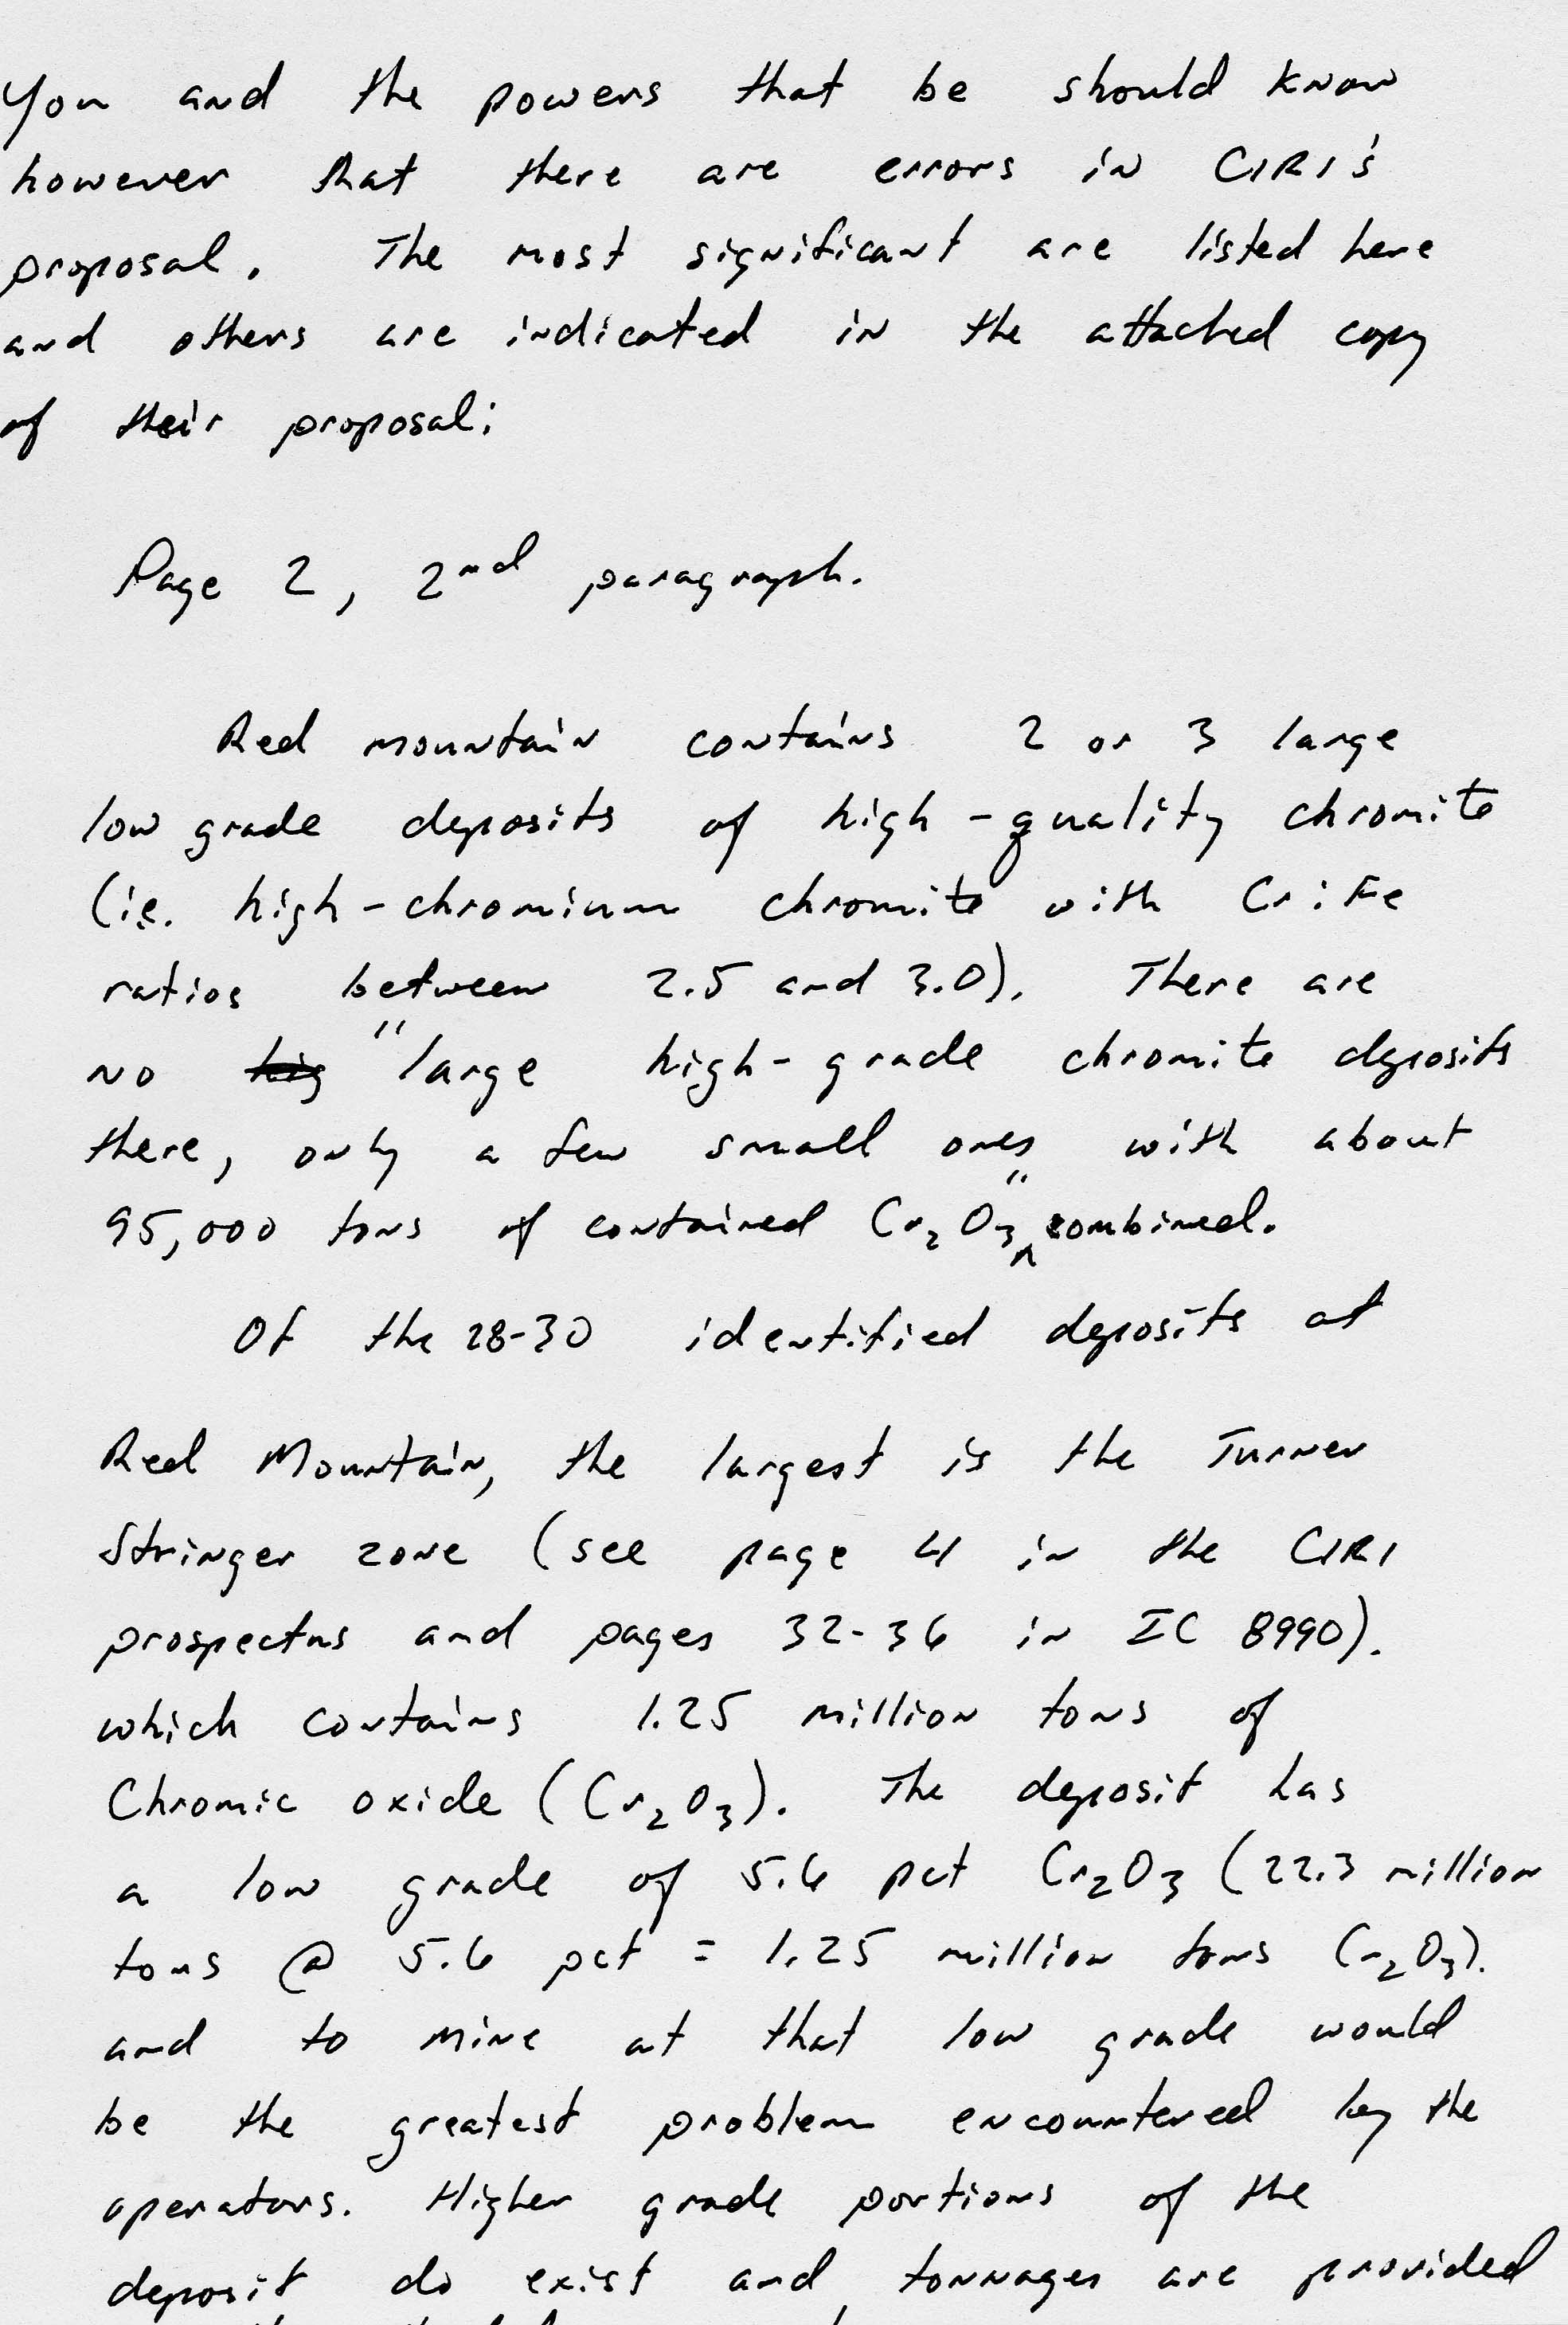 You and the powers that be should know
however that there are errors in CIRI's
proposal. The most significant are listed here
and others are indicated in the attached copy
of their proposal:
Page 2, 2nd paragraph.
Red mountain contains 2 or 3 large
low grade deposits of high-quality chromite
(ie. high-chromium chromite with Cr:Fe
ratios between 2.5 and 3.0). There are
no hig "large high-grade chromite deposits
there, only a few small ones with about
95,000 tons of contained Cr2O3" combined.
Of the 28-30 identified deposits at
Red Mountain, the largest is the Turner
Stringer zone (see page 4 in the CIRI
prospectus and pages 32-36 in IC 8990).
which contains 1.25 million tons of
Chromic oxide (Cr2O3). The deposit has
a low grade of 5.6 pct Cr2O3 (22.3 million
tons @ 5.6 pct = 1.25 million tons Cr2O3).
and to mine at that low grade would
be the greatest problem encountered by the
operators. Higher grade portions of the
deposit do exist and tonnages are provided